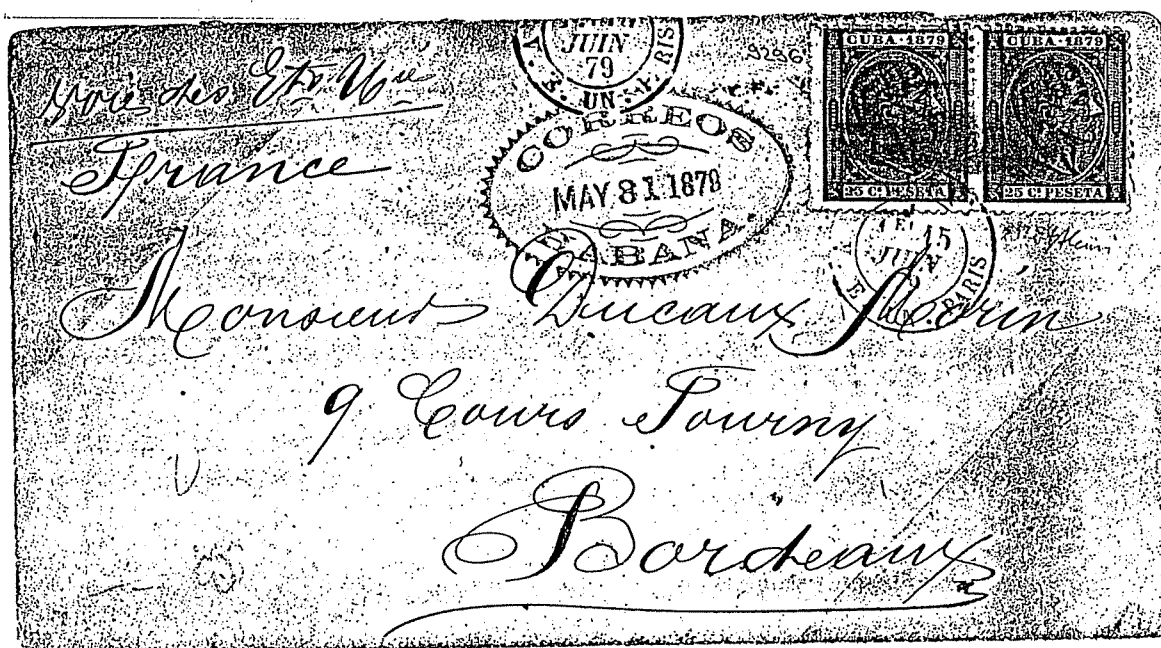 voie des Ets Unis
France
JUIN
79
CORREOS
MAY 31 1879
HABANA.
CUBA·1879
25 Cs PESETA
CUBA·1879
25 Cs PESETA
15
JUIN
PARIS
Monsieur Ducaux Morin
9 Cours Tourny
Bordeaux